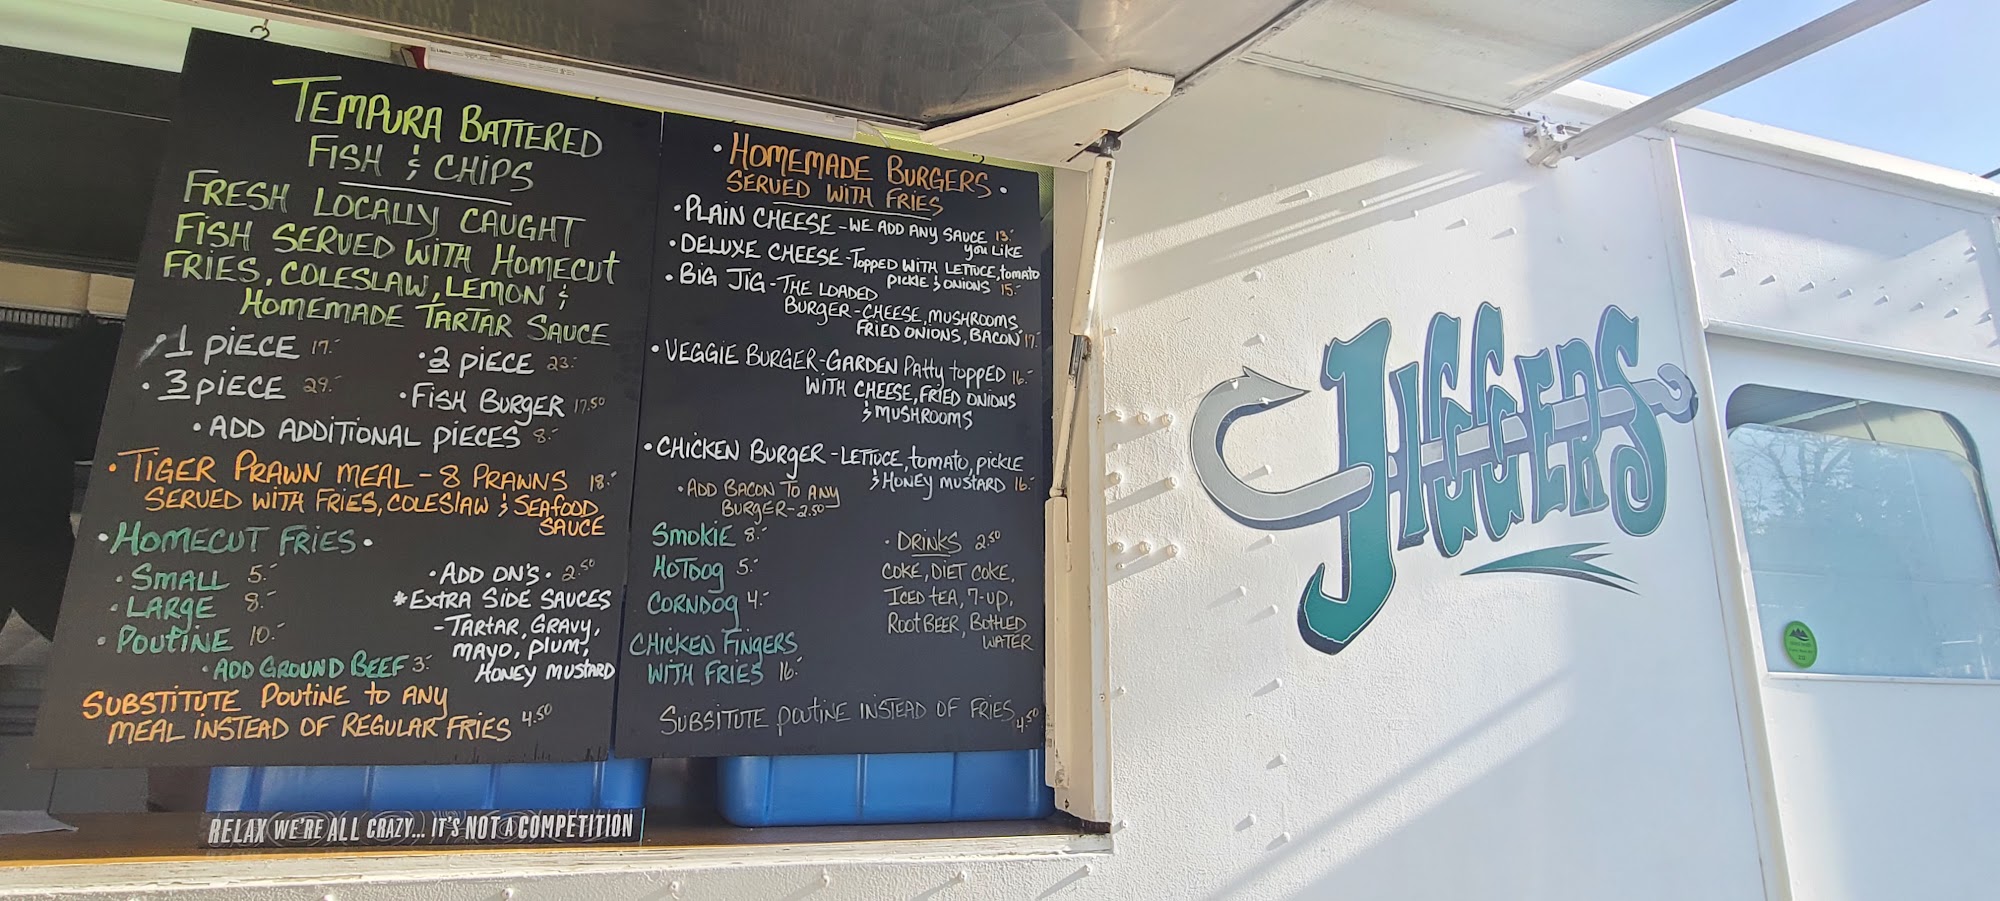 TEMPURA BATTERED
FISH & CHIPS
FRESH LOCALLY CAUGHT
FISH SERVED WITH HOMECUT
FRIES, COLESLAW, LEMON &
HOMEMADE TARTAR SAUCE
• 1 PIECE 17.-
• 2 PIECE 23.-
• 3 PIECE 29.-
• FISH BURGER 17.50
• ADD ADDITIONAL PIECES 8.-
• TIGER PRAWN MEAL - 8 PRAWNS 18.-
SERVED WITH FRIES, COLESLAW & SEAFOOD
SAUCE
• HOMECUT FRIES •
• SMALL 5.-
• LARGE 8.-
• POUTINE 10.-
• ADD GROUND BEEF 3.-
• ADD ON'S • 2.50
* EXTRA SIDE SAUCES
- TARTAR, GRAVY,
MAYO, PLUM,
HONEY MUSTARD
SUBSTITUTE POUTINE TO ANY
MEAL INSTEAD OF REGULAR FRIES 4.50
• HOMEMADE BURGERS •
SERVED WITH FRIES
• PLAIN CHEESE - WE ADD ANY SAUCE 13.-
YOU LIKE
• DELUXE CHEESE - TOPPED WITH LETTUCE, TOMATO
PICKLE & ONIONS 15.-
• BIG JIG - THE LOADED
BURGER - CHEESE, MUSHROOMS,
FRIED ONIONS, BACON 17.-
• VEGGIE BURGER - GARDEN PATTY TOPPED 16.-
WITH CHEESE, FRIED ONIONS
& MUSHROOMS
• CHICKEN BURGER - LETTUCE, TOMATO, PICKLE
& HONEY MUSTARD 16.-
• ADD BACON TO ANY
BURGER - 2.50
SMOKIE 8.-
HOTDOG 5.-
CORNDOG 4.-
CHICKEN FINGERS
WITH FRIES 16.-
• DRINKS 2.50
COKE, DIET COKE,
ICED TEA, 7-UP,
ROOT BEER, BOTTLED
WATER
SUBSITUTE POUTINE INSTEAD OF FRIES 4.50
RELAX WE'RE ALL CRAZY... IT'S NOT A COMPETITION
JIGGERS